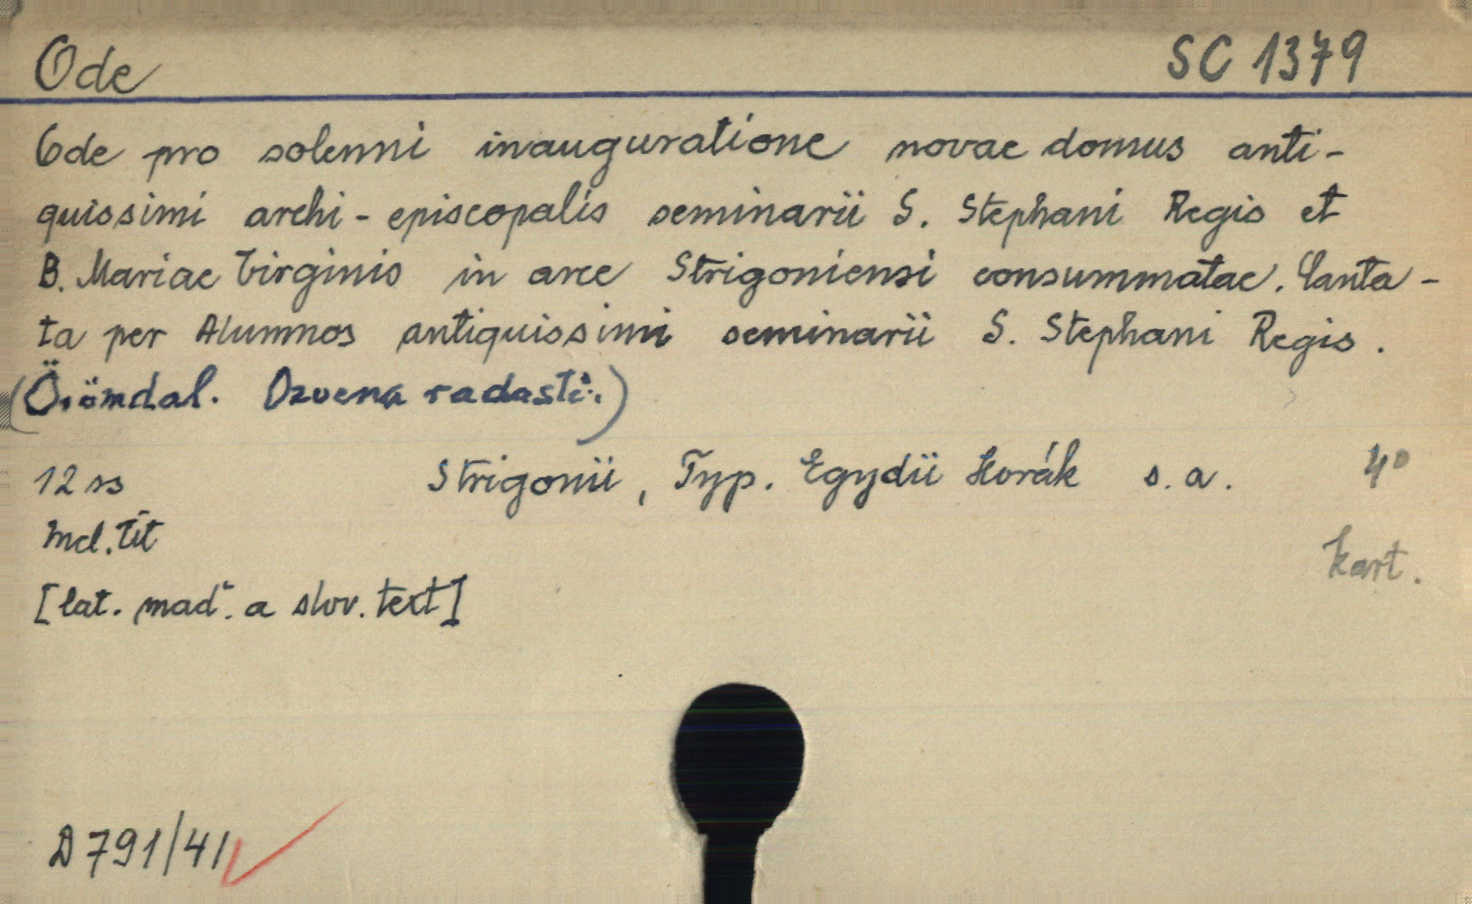 Ode SC 1379
Ode pro solenni inauguratione novae domus anti-
quissimi archi-episcopalis seminarii S. Stephani Regis et
B. Mariae Virginis in arce Strigoniensi consummatae. Canta-
ta per Alumnos antiquissimi seminarii S. Stephani Regis.
(Örömdal. Ozvena radasti.)
12 ss Strigonii, Typ. Egydii Horák s. a. 4°
Incl. tit
[lat. maď. a slov. text] kart.
D 791/41